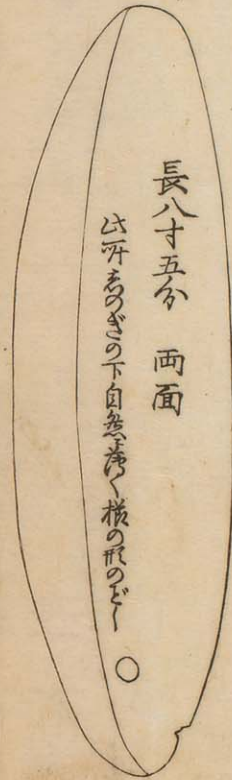 長八寸五分 両面
此所志のぎの下自然と薄く様の形のごとし